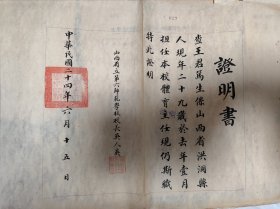 證明書
茲王君篤生係山西省洪洞縣
人現年二十九歲於去年壹月
担任本校體育主任現仍斯職
特此證明
山西省立第六師範學校校長吳人
中華民國二十四年六月十五日